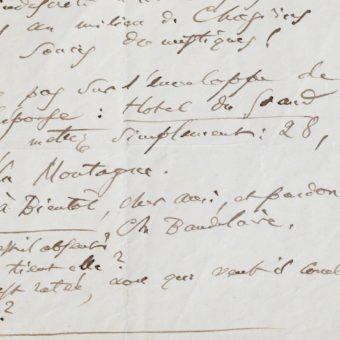 au milieu de Chagrins
Soucis domestiques!
pas sur l'enveloppe de
réponse : Hotel du Grand
mettez simplement: 28,
la Montagne.
à Bientôt, cher ami, et pardon
Ch Baudelaire.
est-il absent?
tient elle?
est ratée, que veut-il
?